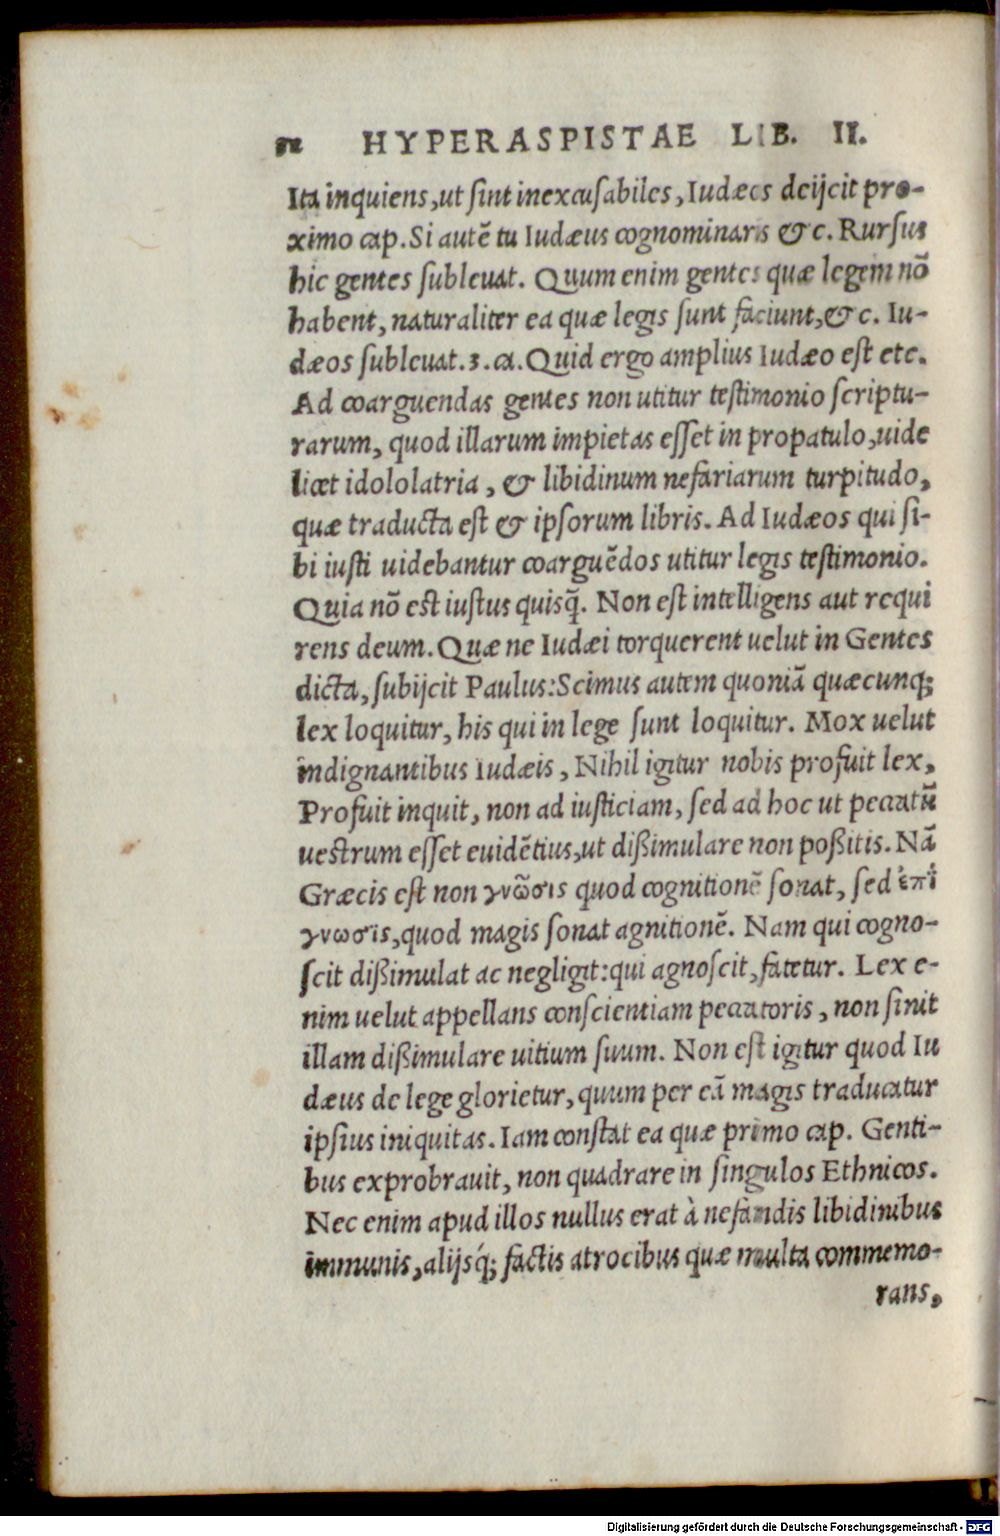 HYPERASPISTAE LIB. II.
Ita inquiens, ut sint inexcusabiles, Iudæos deijcit pro-
ximo cap. Si autē tu Iudæus cognominaris &c. Rursus
hic gentes subleuat. Quum enim gentes quæ legem nō
habent, naturaliter ea quæ legis sunt faciunt, &c. Iu-
dæos subleuat. 3. ca. Quid ergo amplius Iudæo est etc.
Ad coarguendas gentes non utitur testimonio scriptu-
rarum, quod illarum impietas esset in propatulo, uide
licet idololatria, & libidinum nefariarum turpitudo,
quæ traducta est & ipsorum libris. Ad Iudæos qui si-
bi iusti uidebantur coarguēdos utitur legis testimonio.
Quia nō est iustus quisq̄. Non est intelligens aut requi
rens deum. Quæ ne Iudæi torquerent uelut in Gentes
dicta, subijcit Paulus: Scimus autem quoniā quæcunq;
lex loquitur, his qui in lege sunt loquitur. Mox uelut
indignantibus Iudæis, Nihil igitur nobis profuit lex,
Profuit inquit, non ad iusticiam, sed ad hoc ut peccatū
uestrum esset euidētius, ut dißimulare non poßitis. Nā
Græcis est non γνῶσις quod cognitionē sonat, sed ἐπί
γνωσις, quod magis sonat agnitionē. Nam qui cogno-
scit dißimulat ac negligit: qui agnoscit, fatetur. Lex e-
nim uelut appellans conscientiam peccatoris, non sinit
illam dißimulare uitium suum. Non est igitur quod Iu
dæus de lege glorietur, quum per eā magis traducatur
ipsius iniquitas. Iam constat ea quæ primo cap. Genti-
bus exprobrauit, non quadrare in singulos Ethnicos.
Nec enim apud illos nullus erat à nefandis libidinibus
immunis, alijsq́; factis atrocibus quæ multa commemo-
rans,
Digitalisierung gefördert durch die Deutsche Forschungsgemeinschaft - DFG